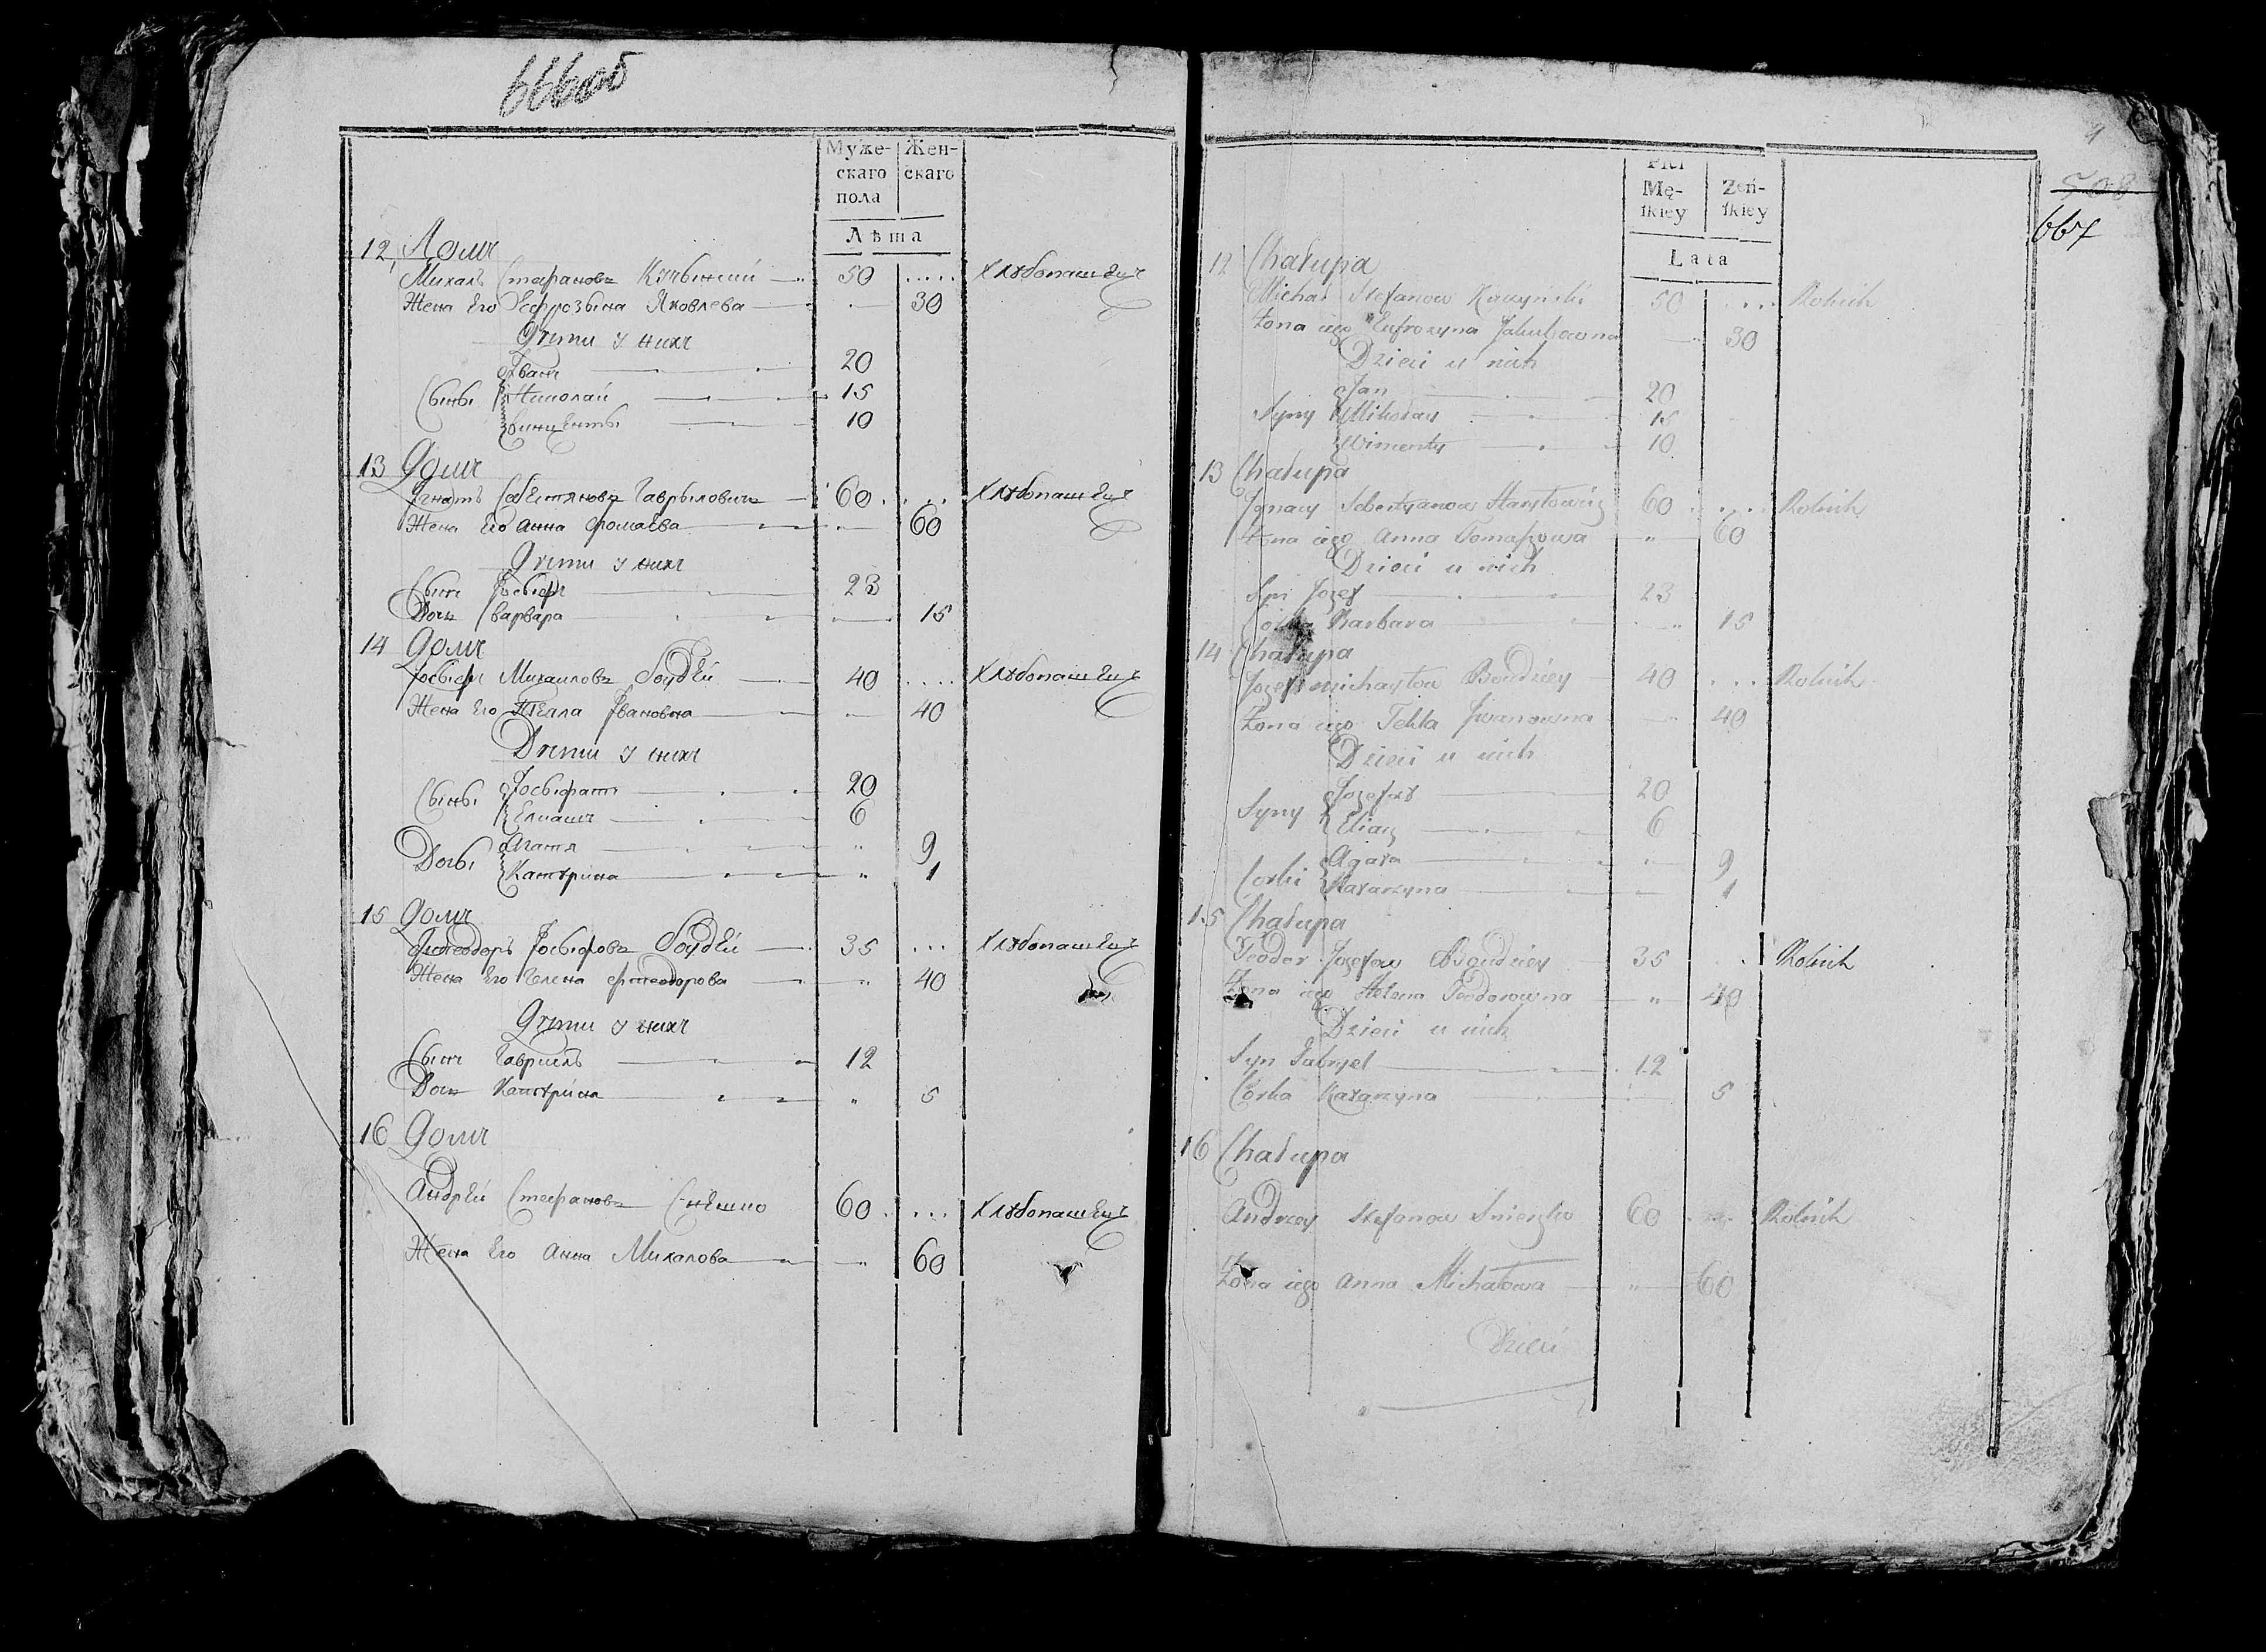 666об
Муже- Жен-
скаго скаго
пола
Лѣта
12 Домъ
Михалъ Стефановъ 50 .... Хлѣбопашецъ
Жена Его Ефрозына Яковлева 30
Дѣти у нихъ
Иванъ 20
Сыны Николай 15
Винценты 10
13 Домъ
Игнатъ Себестяновъ Гаврыловичъ 60 .... Хлѣбопашецъ
Жена Его Анна Фомаева 60
Дѣти у нихъ
Сынъ Іосыфъ 23
Дочь Варвара 15
14 Домъ
Іосыфъ Михаиловъ Боудзѣй 40 .... Хлѣбопашецъ
Жена Его Текла Ивановна 40
Дѣти у нихъ
Сыны Іосыфатъ 20
Елиашъ 6
Дочи Агата " 9
Катѣрина " 1
15 Домъ
Ѳтеодоръ Іосыфовъ 35 ... Хлѣбопашецъ
Жена Его Гелена Фтеодорова " 40
Дѣти у нихъ
Сынъ Гавриилъ 12
Дочь Катѣрина " 5
16 Домъ
Андрей Стефановъ Снешко 60 .... Хлѣбопашецъ
Жена Его Анна Михалова " 60
4
508
667
Płci
Mę- Żeń-
ſkiey ſkiey
Lata
12 Chałupa
Michał Stefanow Kaczyński 50 .... Rolnik
Żona iego Eufrozyna Jakubowna 30
Dzieci u nich
Jan 20
Syny Mikołay 15
Wincenty 10
13 Chałupa
Ignacy Sebestyanow Hawryłowicz 60 .... Rolnik
Żona iego Anna Tomaſzowa " 60
Dzieci u nich
Syn Jozef 23
Corka Barbara " 15
14 Chałupa
Jozef Michayłow Boudziey 40 ... Rolnik
Żona iego Tekla Iwanowna 40
Dzieci u nich
Syny Jozefat 20
Eliasz 6
Corki Agata " 9
Katarzyna 1
15 Chałupa
Teodor Jozefow Boudziey 35 .. Rolnik
Żona iego Helena Teodorowna " 40
Dzieci u nich
Syn Gabryel 12
Corka Katarzyna 5
16 Chałupa
Andrzey Stefanow Snieszko 60 Rolnik
Żona iego Anna Michałowa " 60
Dzieci